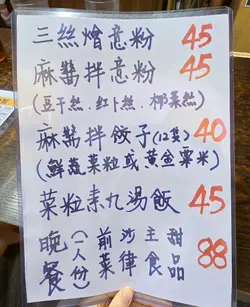 三絲燴意粉 45
麻醬拌意粉 45
(豆干絲.紅卜絲.椰菜絲)
麻醬拌餃子(12隻) 40
(鮮蔬菜粒或黃金粟米)
菜粒素丸湯飯 45
晚餐(一人份)前菜 沙律 主食 甜品 88